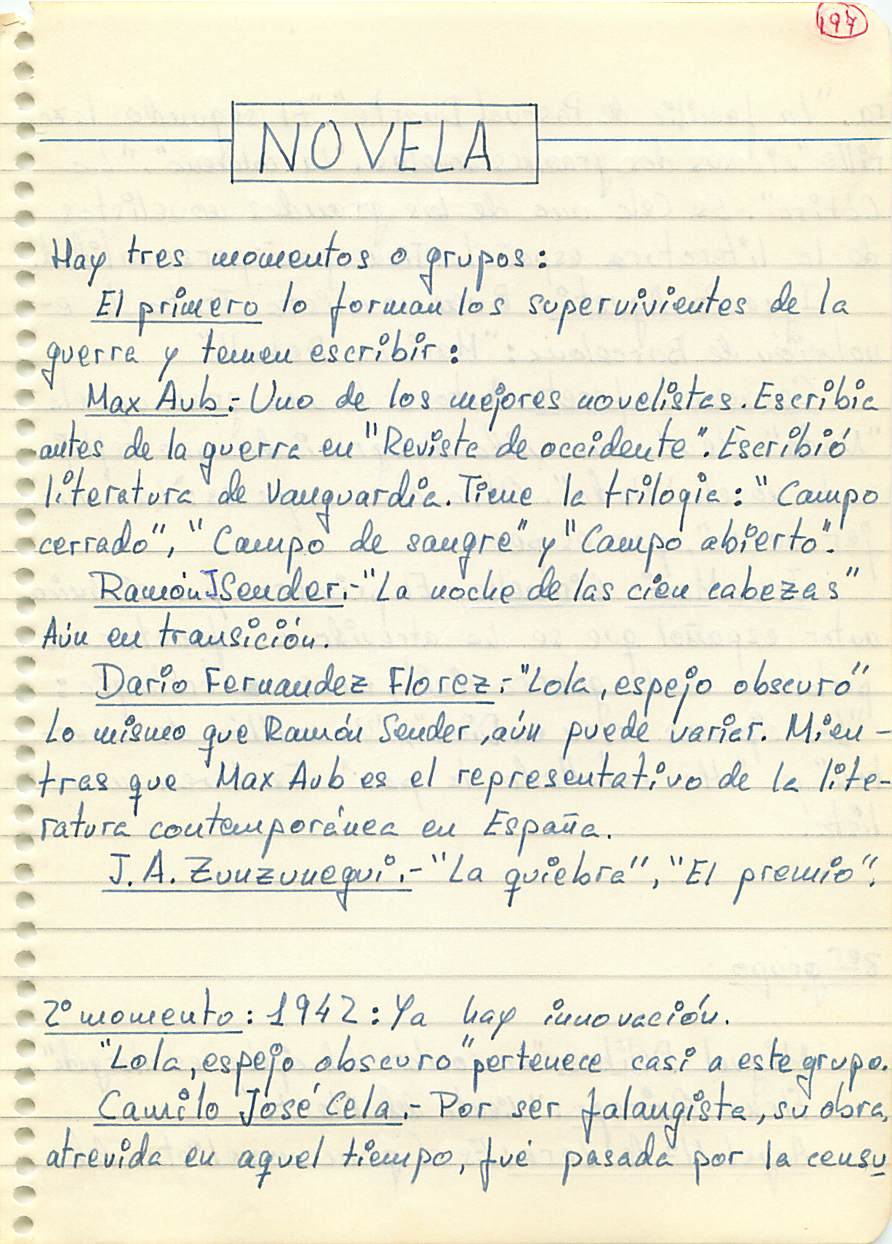 197
NOVELA
Hay tres momentos o grupos:
El primero lo forman los supervivientes de la
guerra y temen escribir:
Max Aub.- Uno de los mejores novelistas. Escribia
antes de la guerra en "Revista de occidente". Escribió
literatura de vanguardia. Tiene la trilogia: "Campo
cerrado", "Campo de sangre" y "Campo abierto".
Ramón J Sender.- "La noche de las cien cabezas"
Aún en transición.
Dario Fernandez Florez.- "Lola, espejo obscuro"
Lo mismo que Ramón Sender, aún puede variar. Mien-
tras que Max Aub es el representativo de la lite-
ratura contemporánea en España.
J. A. Zunzunegui.- "La quiebra", "El premio".
2º momento: 1942: Ya hay innovación.
"Lola, espejo obscuro" pertenece casi a este grupo.
Camilo José Cela.- Por ser falangista, su obra,
atrevida en aquel tiempo, fué pasada por la censu